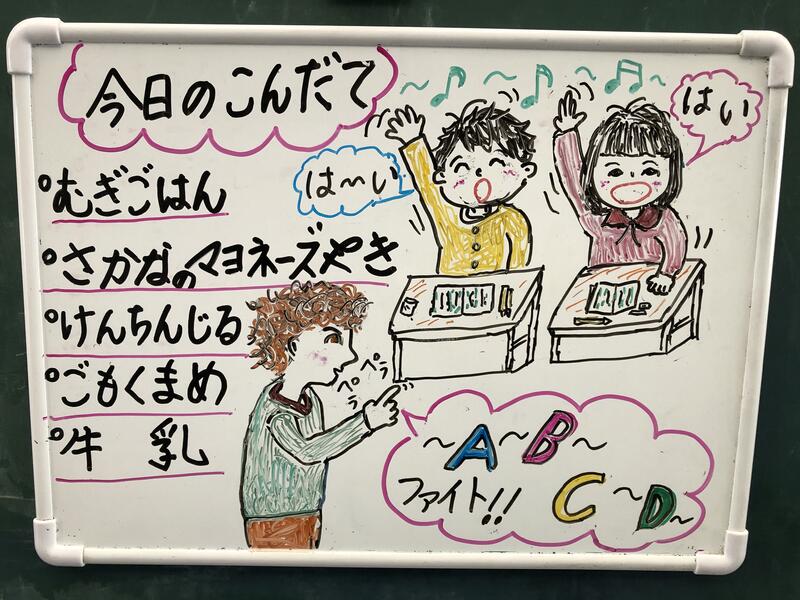 今日のこんだて
°むぎごはん
°さかなのマヨネーズやき
°けんちんじる
°ごもくまめ
°牛 乳
は〜い
はい
ペペラ
〜A〜B〜
C〜D〜
ファイト!!